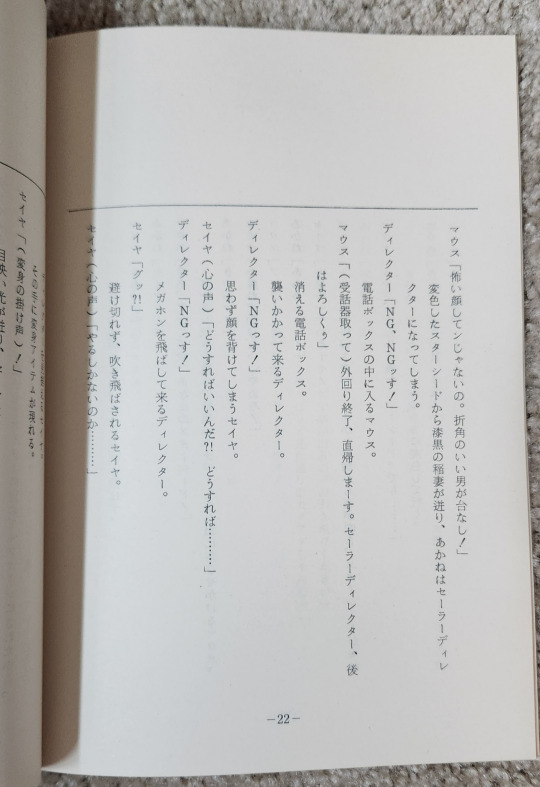 マウス「怖い顔してンじゃないの。折角のいい男が台なし!」
変色したスターシードから漆黒の稲妻が迸り、あかねはセーラーディレ
クターになってしまう。
ディレクター「NG、NGッす!」
電話ボックスの中に入るマウス。
マウス「(受話器取って)外回り終了、直帰しまーす。セーラーディレクター、後
はよろしくぅ」
消える電話ボックス。
襲いかかって来るディレクター。
ディレクター「NGっす!」
思わず顔を背けてしまうセイヤ。
セイヤ(心の声)「どうすればいいんだ?! どうすれば………」
ディレクター「NGっす!」
メガホンを飛ばして来るディレクター。
セイヤ「グッ?!」
避け切れず、吹き飛ばされるセイヤ。
セイヤ(心の声)「やるしかないのか………」
その手に変身アイテムが現れる。
セイヤ「(変身の掛け声)!」
目映い光が迸り、
—22—